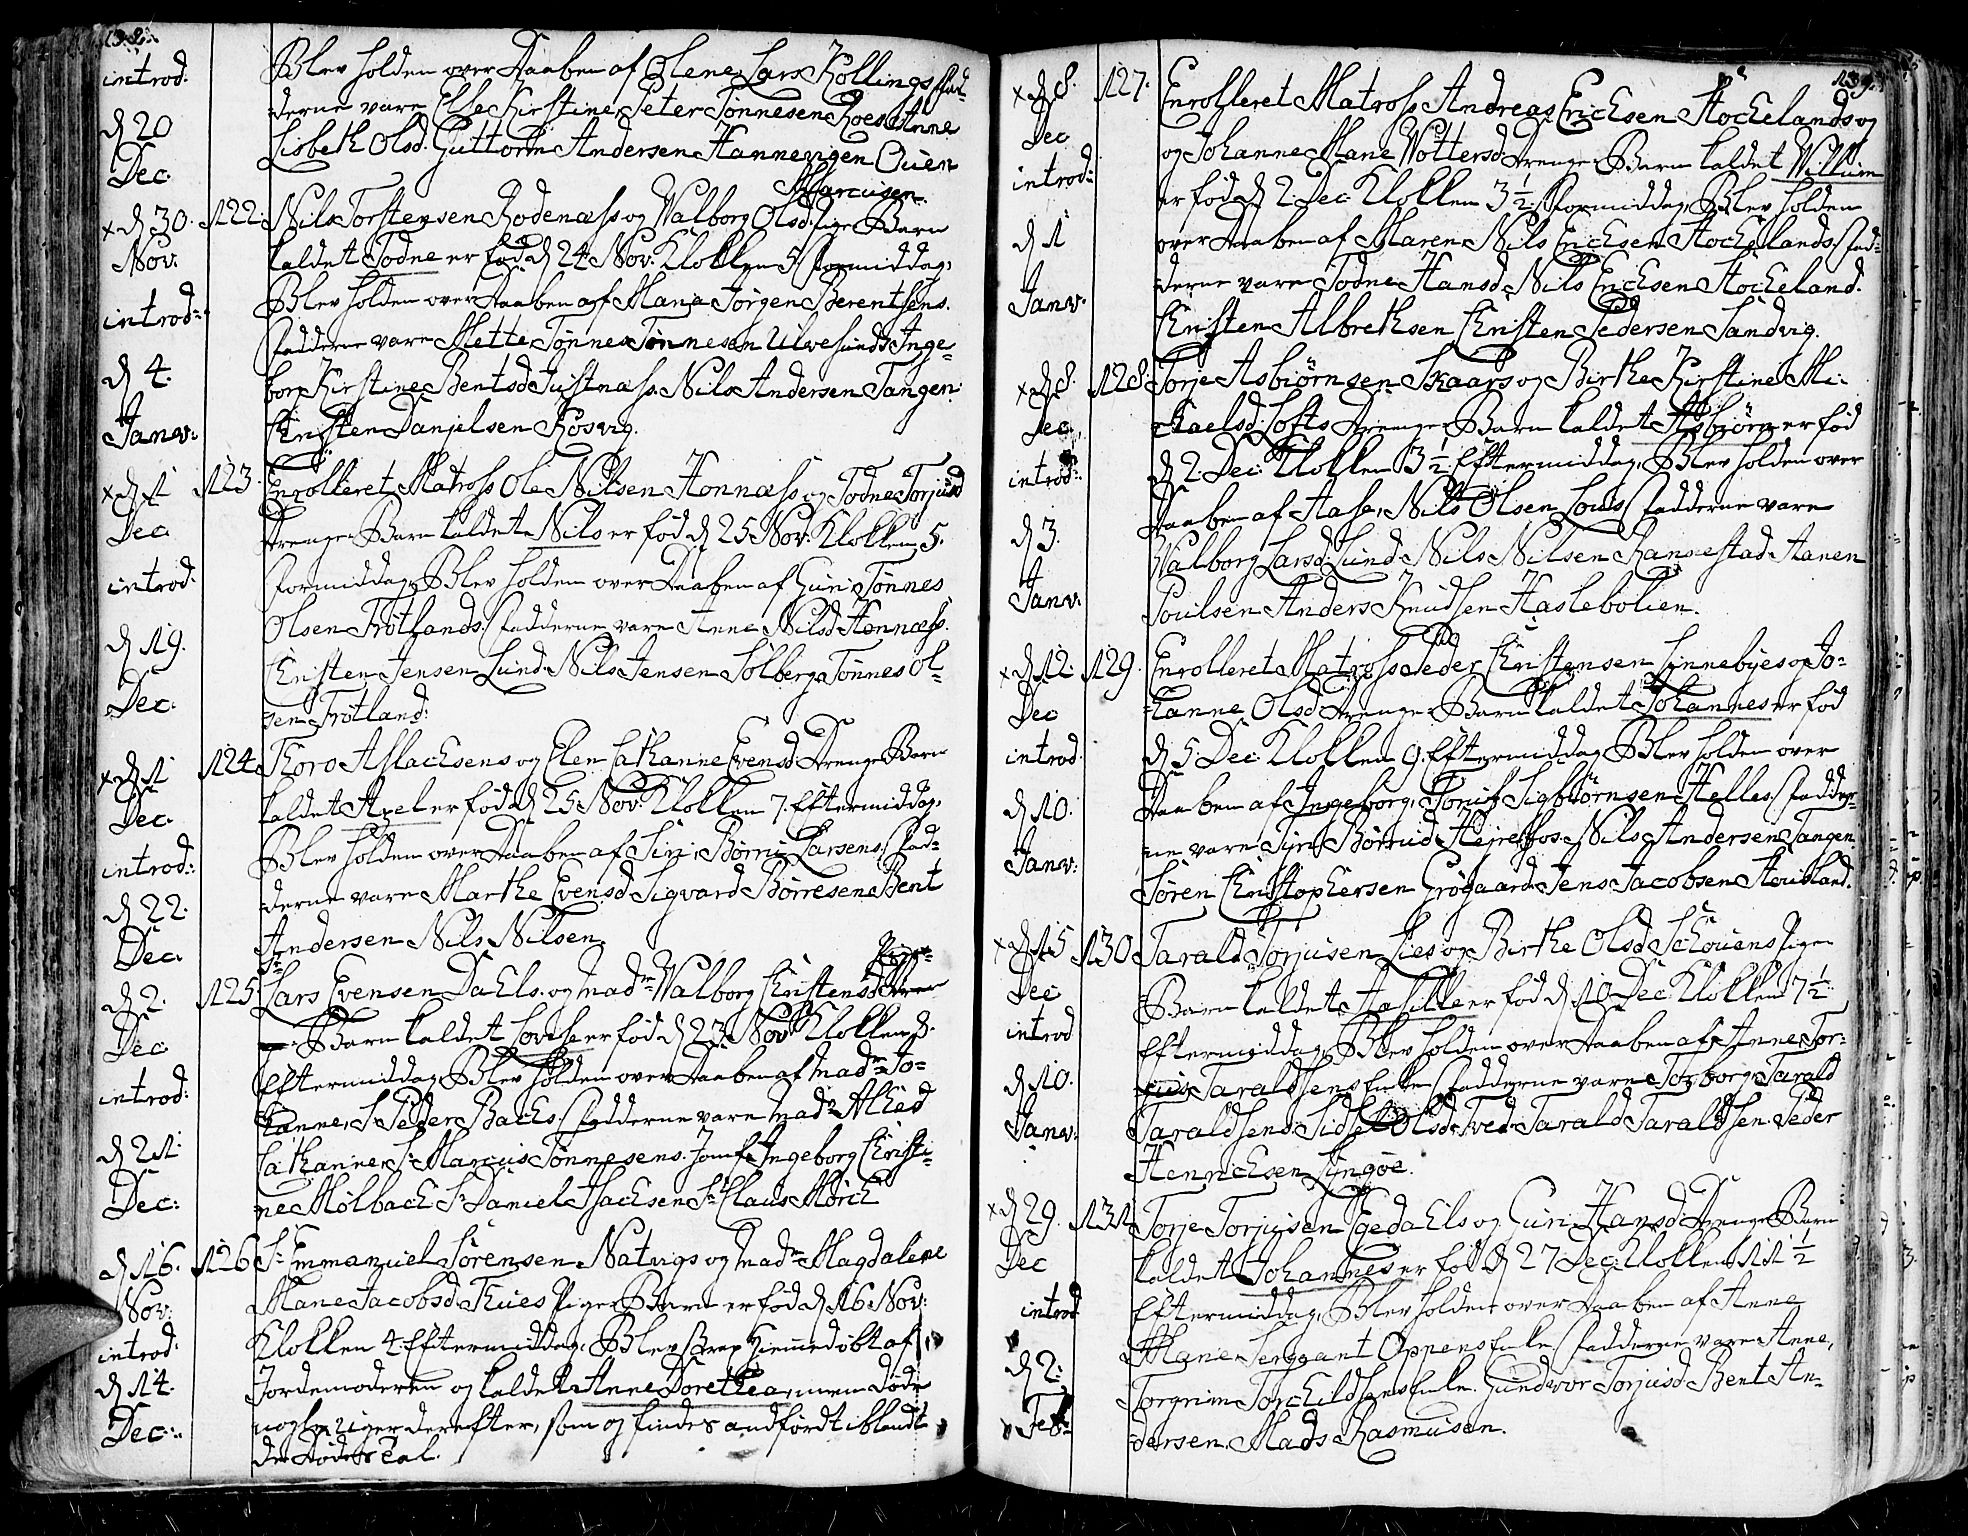 138.
introd:
d 20
Dec.
Blev holden over Daaben af Olene Lars Kollings Fad-
derne vare Else Kirstine Peter Tønnesen Roes Anne
Lisbeth Olsd. Guttorm Andersen Hannengen Ouen
Marcusen.
x d 30. Nov.
introd:
d 4. Janv:
122. Nils Torstensen Rodenæss og Walborg Olsd. Pige Barn
kaldet Todne er fød d 24 Nov. Klokken 5 Formiddag,
Blev holden over Daaben af Maria Jørgen Berentsens.
Fadderne vare Mette Tønnes Tønnesen Ulvesunds Inge-
borg Kirstine Bentsd. Justnæss. Nils Andersen Tangen
Christen Danjelsen Kosvig.
x d 1 Dec.
introd:
d 19. Dec.
123. Enrolleret Matross Ole Nilsen Honnæss og Todne Torjusd
Drenge Barn kaldet Nils er fød d 25 Nov. Klokken 5.
Formiddag, Blev holden over Daaben af Guri Tønnes
Olsen Frøtlands. Fadderne vare Anne Nilsd Honnæss.
Christen Jensen Lund. Nils Jensen Solberg Tønnes Ol-
sen Frøtland:
x d 1 Dec.
introd:
d 22. Dec.
124. Thoro Aslachsens og Elen Cathanne Evensd. Drenge Barn
kaldet Axel er fød d 25 Nov. Klokken 7. Eftermiddag,
Blev holden over Daaben af Siri Børni Larsens. Fad-
derne vare Marthe Evensd Sigvard Børresen Bent
Andersen Nils Nilsen.
d 2. Dec
introd:
d 21 Dec:
125 Sr Lars Evensen Dahls og Madme Walborg Christensd. Pige-
Barn kaldet Lovise er fød d 23 Nov. Klokken 8.
Eftermiddag, Blev holden over Daaben af Madme Jo-
hanne Sr Peder Bachs. Fadderne vare Madme Alhed
Cathanne Sr Marcus Tønnesens. Jomf. Ingeborg Christi-
ne Molbach Sr Daniel Isachsen Sr Claus Mørch
d 16. Nov:
introd:
d 14. Dec:
126 Sr Emmanuel Sørensen Natvigs og Madme Magdalene
Mane Jacobsd. Thues Pige Barn er fød d 16 Nov:
Klokken 4 Eftermiddag, Blev strax Hiemmedøbt af
Jordemoderen og kaldet Anne Dorethea, men døde
nogle uger derefter, som og findes andførdt iblandt
de dødes Tal.
139.
x d 8. Dec
introd:
d 1 Janv:
127. Enrolleret Matross Andreas Erichsen Stochelands og
og Johanne Mane Wottersd Drenge Barn kaldet Willum
er fød d 2 Dec: Klokken 3 1/2 Formiddag, Blev holden
over Daaben af Maren Nils Erichsen Stochelands. Fad-
derne vare Todne Hansd. Nils Erichsen Stocheland.
Christen Albrethsen Christen Pedersen Sandvig.
x d 8. Dec.
introd:
d 3. Janv:
128. Torje Asbiørnsen Skaars og Birthe Kirstine Mi-
chaelsd: Lofts Drenge Barn kaldet Asbiørn er fød
d 2. Dec: Klokken 3 1/2 Eftermiddag, Blev holden over
Daaben af Aase, Nils Olsen Louds Fadderne vare
Walborg Larsd: Lund. Nils Nilsen Rannestad Aanen
Poulsen Anders Knudsen Haslebolien.
x d 12. Dec
introd.
d 10. Janv:
129. Enrolleret Matross Peder Christensen Linnebyes og Jo-
hanne Olsd Drenge Barn kaldet Johannes er fød
d 5 Dec: Klokken 9. Eftermiddag, Blev holden over
Daaben af Ingeborg, Torris Sigbiørnsen Helles. Fadder-
ne vare Siri Børmid Nils Andersen Tangen
Søren Christophersen Grøgaard Jens Jacobsen
x d 15 Dec
introd
d 10. Janv:
130 Tarald Torjusen Lies og Birthe Olsd Schouens Pige
Barn kaldet Aasille er fød d 10 Dec: Klokken 7 1/2
Eftermiddag, Blev holden over Daaben af Anne Tor-
jus Taraldsens Enke. Fadderne vare Torborg Tarald
Taraldsens Sidsel Olsd. Tved. Tarald Taraldsen Peder
Henrichsen Syngøe.
x d 29. Dec
introd
d 2. Feb:
131 Torje Torjusen Egedahls og Guri Hansd. Drenge Barn
kaldet Johannes er fød d 27 Dec: Klokken 11 1/2
Eftermiddag, Blev holden over Daaben af Anne
Mane Sergeant Oppens Enke. Fadderne vare Anne,
Torgrim Torchildsens Enke. Gundvor Torjusd. Bent An-
dersen. Mads Rasmusen.